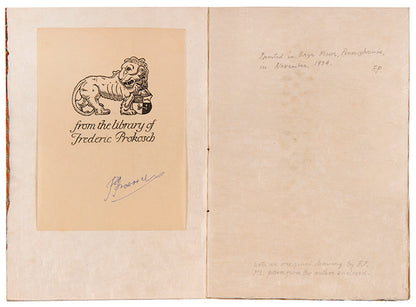 from the library of
Frederic Prokosch
Printed in Bryn Mawr, Pennsylvania,
in November 1934.
F.P.
with an original drawing by F.P.